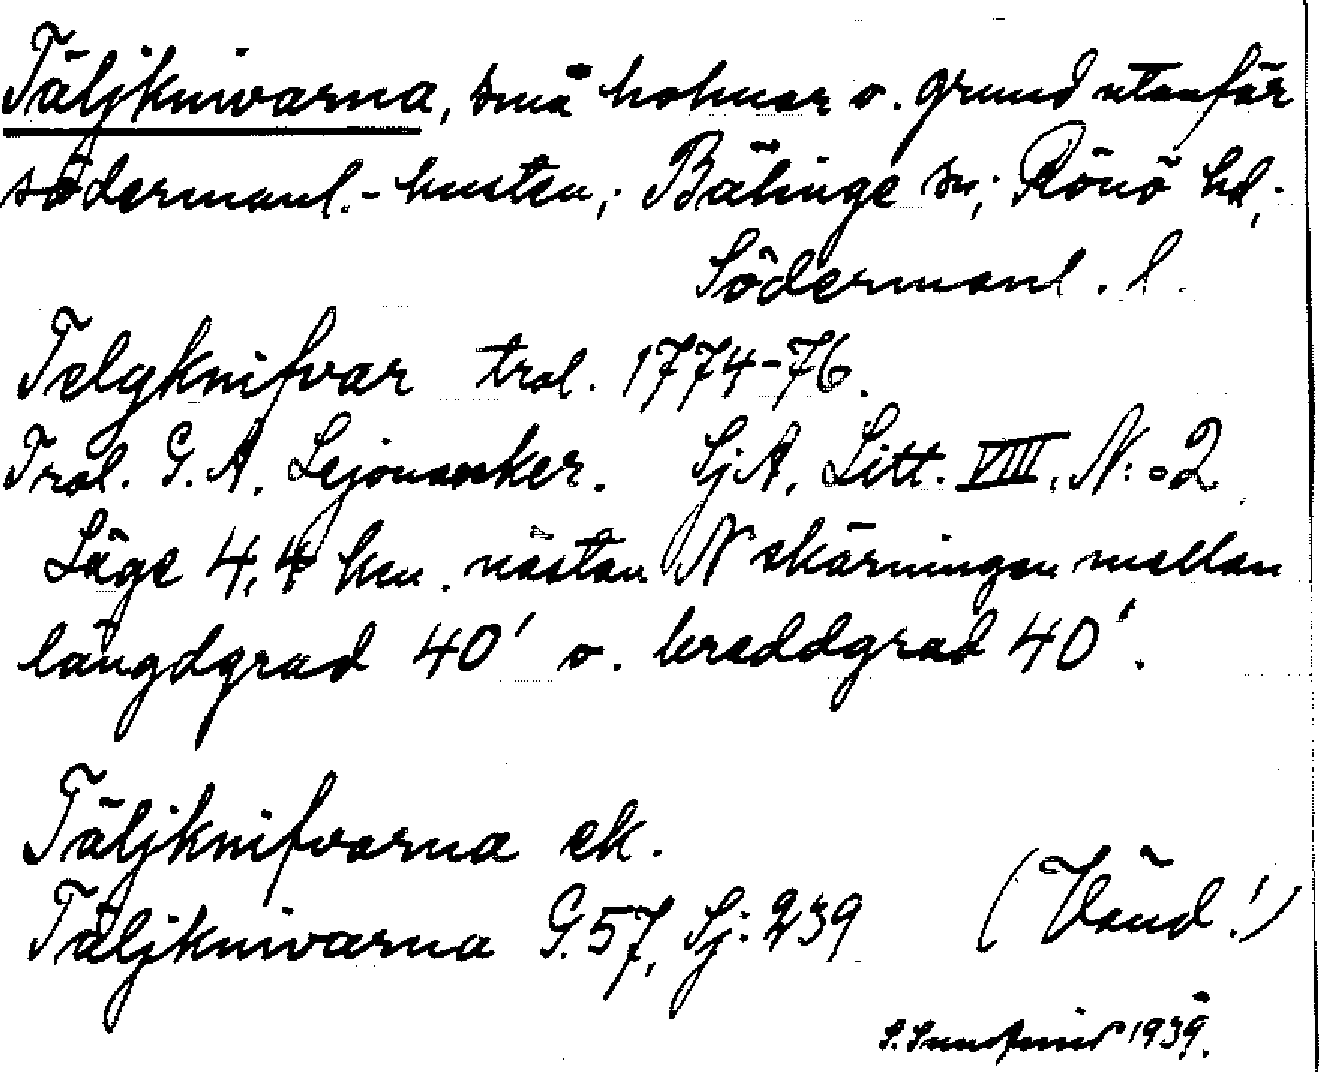 Täljknivarna, små holmar o. grund utanför
södermanl.-kusten; Bälinge sn; Rönö hd;
Södermanl. l.
Telgknifvar trol. 1774-76.
Trol. G. A. Lejonanker. SjA, Litt. VIII, N:o 2
Läge 4,4 km. nästan N skärningen mellan
längdgrad 40' o. breddgrad 40'.
Täljknifvarna ek.
Täljknivarna G. 57, Sj: 239 (Vänd!)
1939.